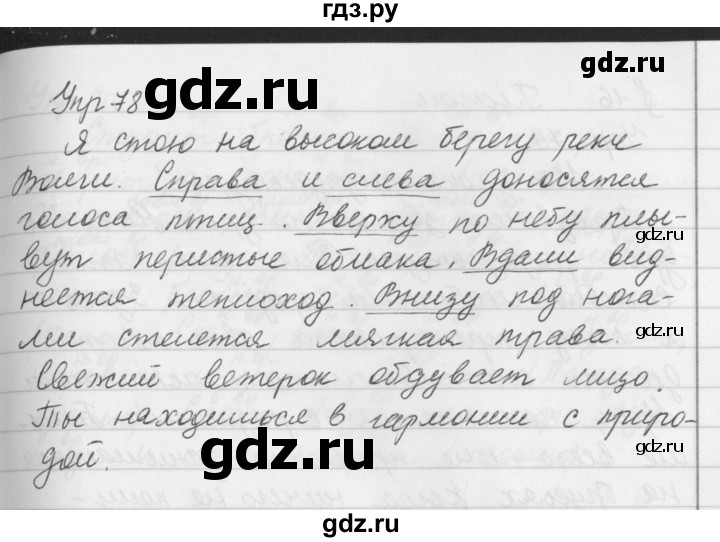 гдз.ру
gdz.ru
gdz.ru
Упр 78
Я стою на высоком берегу реки
Волги. Справа и слева доносятся
голоса птиц. Вверху по небу плы-
gdz.ru
вут перистые облака. Вдали вид-
неется теплоход. Внизу под нога-
ми стелется мягкая трава.
gdz.ru
Свежий ветерок обдувает лицо.
Ты находишься в гармонии с приро-
дой.
gdz.ru
gdz.ru
gdz.ru